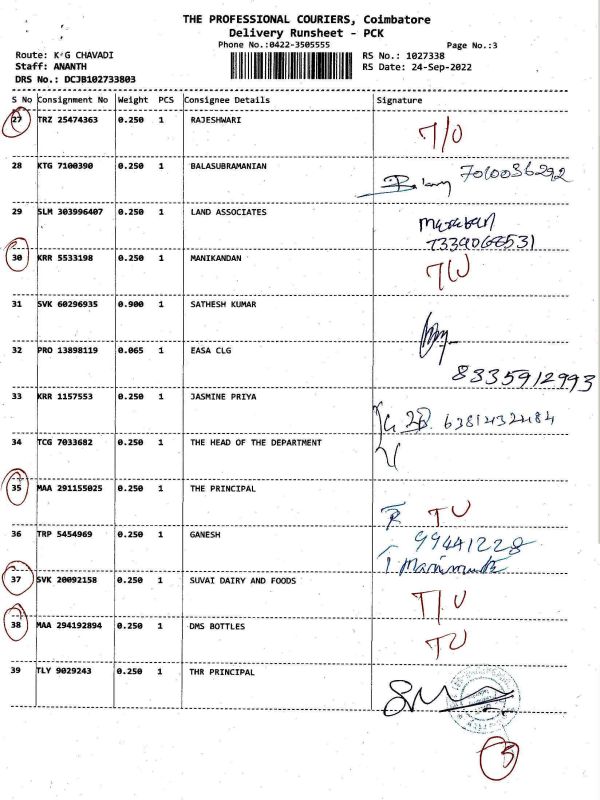 THE PROFESSIONAL COURIERS, Coimbatore
Delivery Runsheet - PCK
Phone No.:0422-3505555 Page No.:3
Route: K G CHAVADI RS No.: 1027338
Staff: ANANTH RS Date: 24-Sep-2022
DRS No.: DCJB102733803
S No Consignment No Weight PCS Consignee Details Signature
27 TRZ 25474363 0.250 1 RAJESHWARI
T/O
28 KTG 7100390 0.250 1 BALASUBRAMANIAN
7010036292
29 SLM 303996407 0.250 1 LAND ASSOCIATES
7339068531
30 KRR 5533198 0.250 1 MANIKANDAN
31 SVK 60296935 0.900 1 SATHESH KUMAR
32 PRO 13898119 0.065 1 EASA CLG
8335912993
33 KRR 1157553 0.250 1 JASMINE PRIYA
34 TCG 7033682 0.250 1 THE HEAD OF THE DEPARTMENT
35 MAA 291155025 0.250 1 THE PRINCIPAL
TU
36 TRP 5454969 0.250 1 GANESH
99441228
37 SVK 20092158 0.250 1 SUVAI DAIRY AND FOODS
T/U
38 MAA 294192894 0.250 1 DMS BOTTLES
TU
39 TLY 9029243 0.250 1 THR PRINCIPAL
5